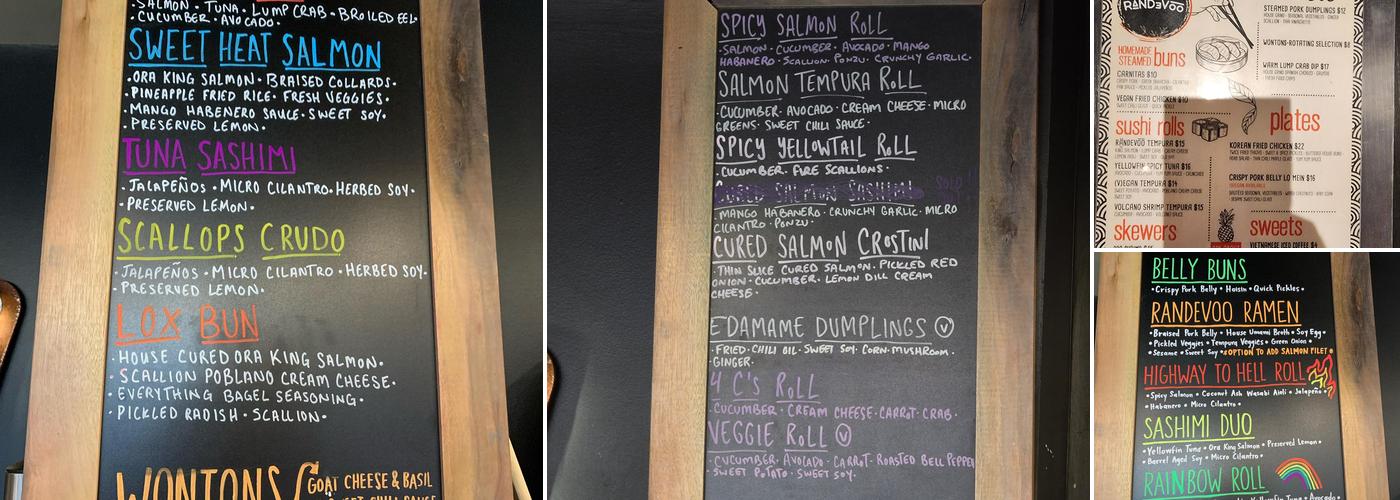 SALMON · TUNA · LUMP CRAB · BROILED EEL ·
· CUCUMBER · AVOCADO ·
SWEET HEAT SALMON
· ORA KING SALMON · BRAISED COLLARDS ·
· PINEAPPLE FRIED RICE · FRESH VEGGIES ·
· MANGO HABENERO SAUCE · SWEET SOY ·
· PRESERVED LEMON ·
TUNA SASHIMI
· JALAPEÑOS · MICRO CILANTRO · HERBED SOY ·
· PRESERVED LEMON ·
SCALLOPS CRUDO
· JALAPEÑOS · MICRO CILANTRO · HERBED SOY ·
· PRESERVED LEMON ·
LOX BUN
· HOUSE CURED ORA KING SALMON ·
· SCALLION POBLANO CREAM CHEESE ·
· EVERYTHING BAGEL SEASONING ·
· PICKLED RADISH · SCALLION ·
WONTONS GOAT CHEESE & BASIL
SPICY SALMON ROLL
· SALMON · CUCUMBER · AVOCADO · MANGO
HABANERO · SCALLION PONZU · CRUNCHY GARLIC ·
SALMON TEMPURA ROLL
· CUCUMBER · AVOCADO · CREAM CHEESE · MICRO
GREENS · SWEET CHILI SAUCE ·
SPICY YELLOWTAIL ROLL
· CUCUMBER · FIRE SCALLIONS ·
CURED SALMON SASHIMI SOLD
· MANGO HABANERO · CRUNCHY GARLIC · MICRO
CILANTRO · PONZU ·
CURED SALMON CROSTINI
· THIN SLICE CURED SALMON · PICKLED RED
ONION · CUCUMBER · LEMON DILL CREAM
CHEESE ·
EDAMAME DUMPLINGS V
· FRIED · CHILI OIL · SWEET SOY · CORN · MUSHROOM ·
GINGER ·
4 C'S ROLL
· CUCUMBER · CREAM CHEESE · CARROT · CRAB ·
VEGGIE ROLL V
· CUCUMBER · AVOCADO · CARROT · ROASTED BELL PEPPER
· SWEET POTATO · SWEET SOY ·
RANDEVOO
HOMEMADE
STEAMED buns
CARNITAS $10
VEGAN FRIED CHICKEN $10
sushi rolls
RANDEVOO TEMPURA $15
YELLOWFIN SPICY TUNA $16
(V)EGAN TEMPURA $14
VOLCANO SHRIMP TEMPURA $15
skewers
STEAMED PORK DUMPLINGS $12
WONTONS-ROTATING SELECTION $8
WARM LUMP CRAB DIP $17
plates
KOREAN FRIED CHICKEN $22
CRISPY PORK BELLY LO MEIN $16
sweets
VIETNAMESE ICED COFFEE $4
BELLY BUNS
• Crispy Pork Belly • Hoisin • Quick Pickles •
RANDEVOO RAMEN
• Braised Pork Belly • House Umami Broth • Soy Egg •
• Pickled Veggies • Tempura Veggies • Green Onion •
• Sesame • Sweet Soy • *OPTION TO ADD SALMON FILET*
HIGHWAY TO HELL ROLL
• Spicy Salmon • Coconut Ash Wasabi Aioli • Jalapeño •
• Habanero • Micro Cilantro •
SASHIMI DUO
• Yellowfin Tuna • Ora King Salmon • Preserved Lemon •
• Barrel Aged Soy • Micro Cilantro •
RAINBOW ROLL
Yellowfin Tuna • Avocado •